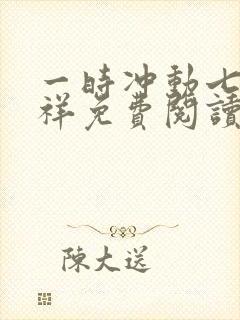 一时冲動七
祥免費閱讀
陳大送